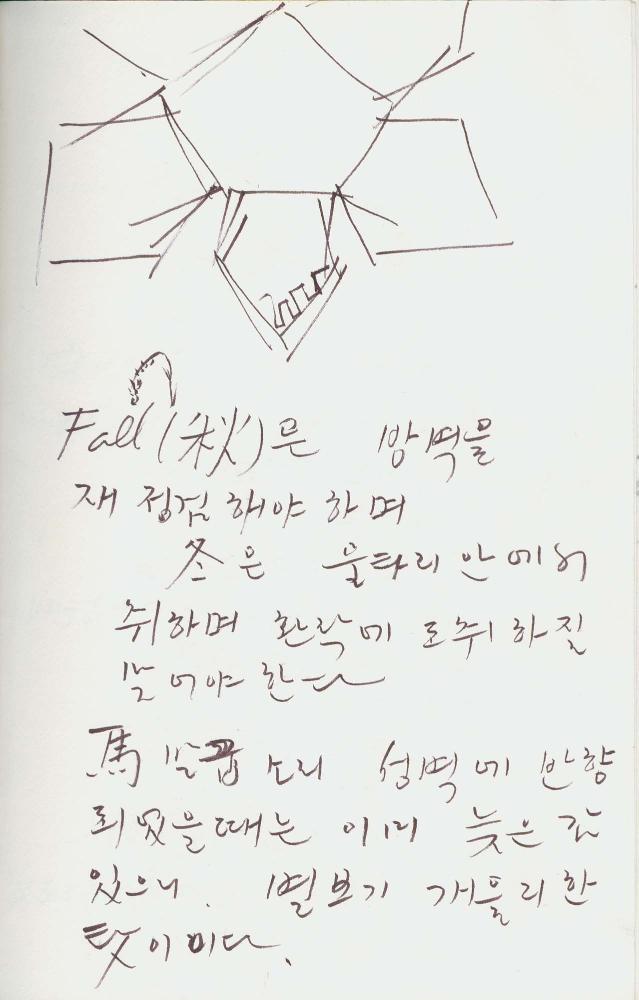 Fall(秋)은 방벽을
재 정검 해야 하며
冬은 울타리 안에서
취하며 환락에 도취하질
말어야 한다
馬 말굽 소리 성벽에 반향
되었을때는 이미 늦은 감
있으니. 별보기 게을리 한
탓이리다.